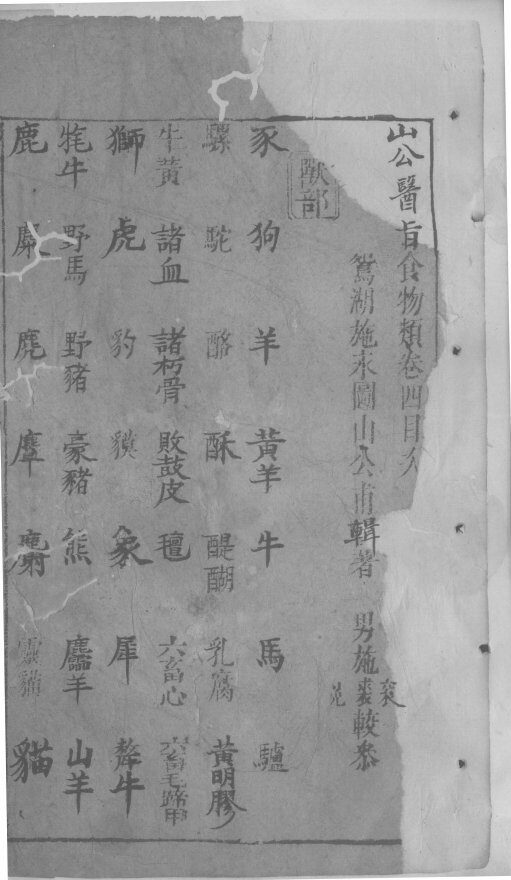 山公醫旨食物類卷四目次
鴛湖施永圖山公甫輯著 男施
裘較參
獸部
豕 狗 羊 黃羊 牛 馬 驢
騾 駝 酪 酥 醍醐 乳腐 黃明膠
牛黃 諸血 諸朽骨 敗鼓皮 氊 六畜心 六畜毛蹄甲
獅 虎 豹 貘 象 犀 犛牛
牦牛 野馬 野豬 豪豬 熊 麢羊 山羊
鹿 麋 麂 麞 麝 靈貓 貓